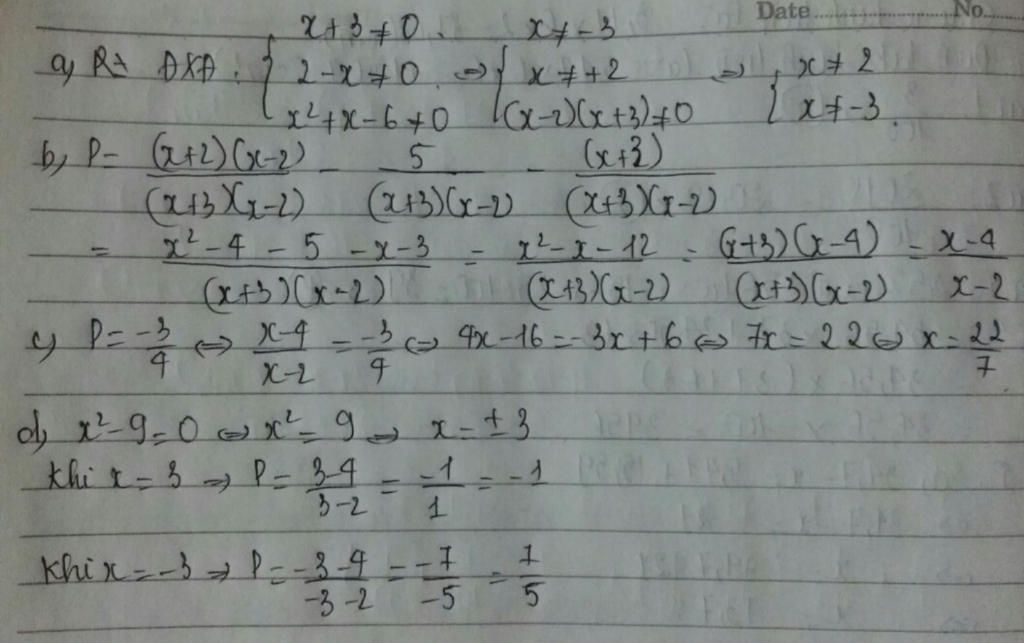 Date ............ No. ......
x+3≠0. x≠-3
a) ĐKXĐ: { 2-x≠0 ⇔ { x≠+2 ⇒ { x≠2
x²+x-6≠0 (x-2)(x+3)≠0 x≠-3.
b) P = (x+2)(x-2)/(x+3)(x-2) - 5/(x+3)(x-2) - (x+3)/(x+3)(x-2)
= x²-4-5-x-3/(x+3)(x-2) = x²-x-12/(x+3)(x-2) = (x+3)(x-4)/(x+3)(x-2) = x-4/x-2
c) P = -3/4 ⇔ x-4/x-2 = -3/4 ⇔ 4x-16=-3x+6 ⇔ 7x=22 ⇔ x=22/7.
d) x²-9=0 ⇔ x²=9 ⇒ x=±3
Khi x=3 ⇒ P = 3-4/3-2 = -1/1 = -1
Khi x=-3 ⇒ P = -3-4/-3-2 = -7/-5 = 7/5